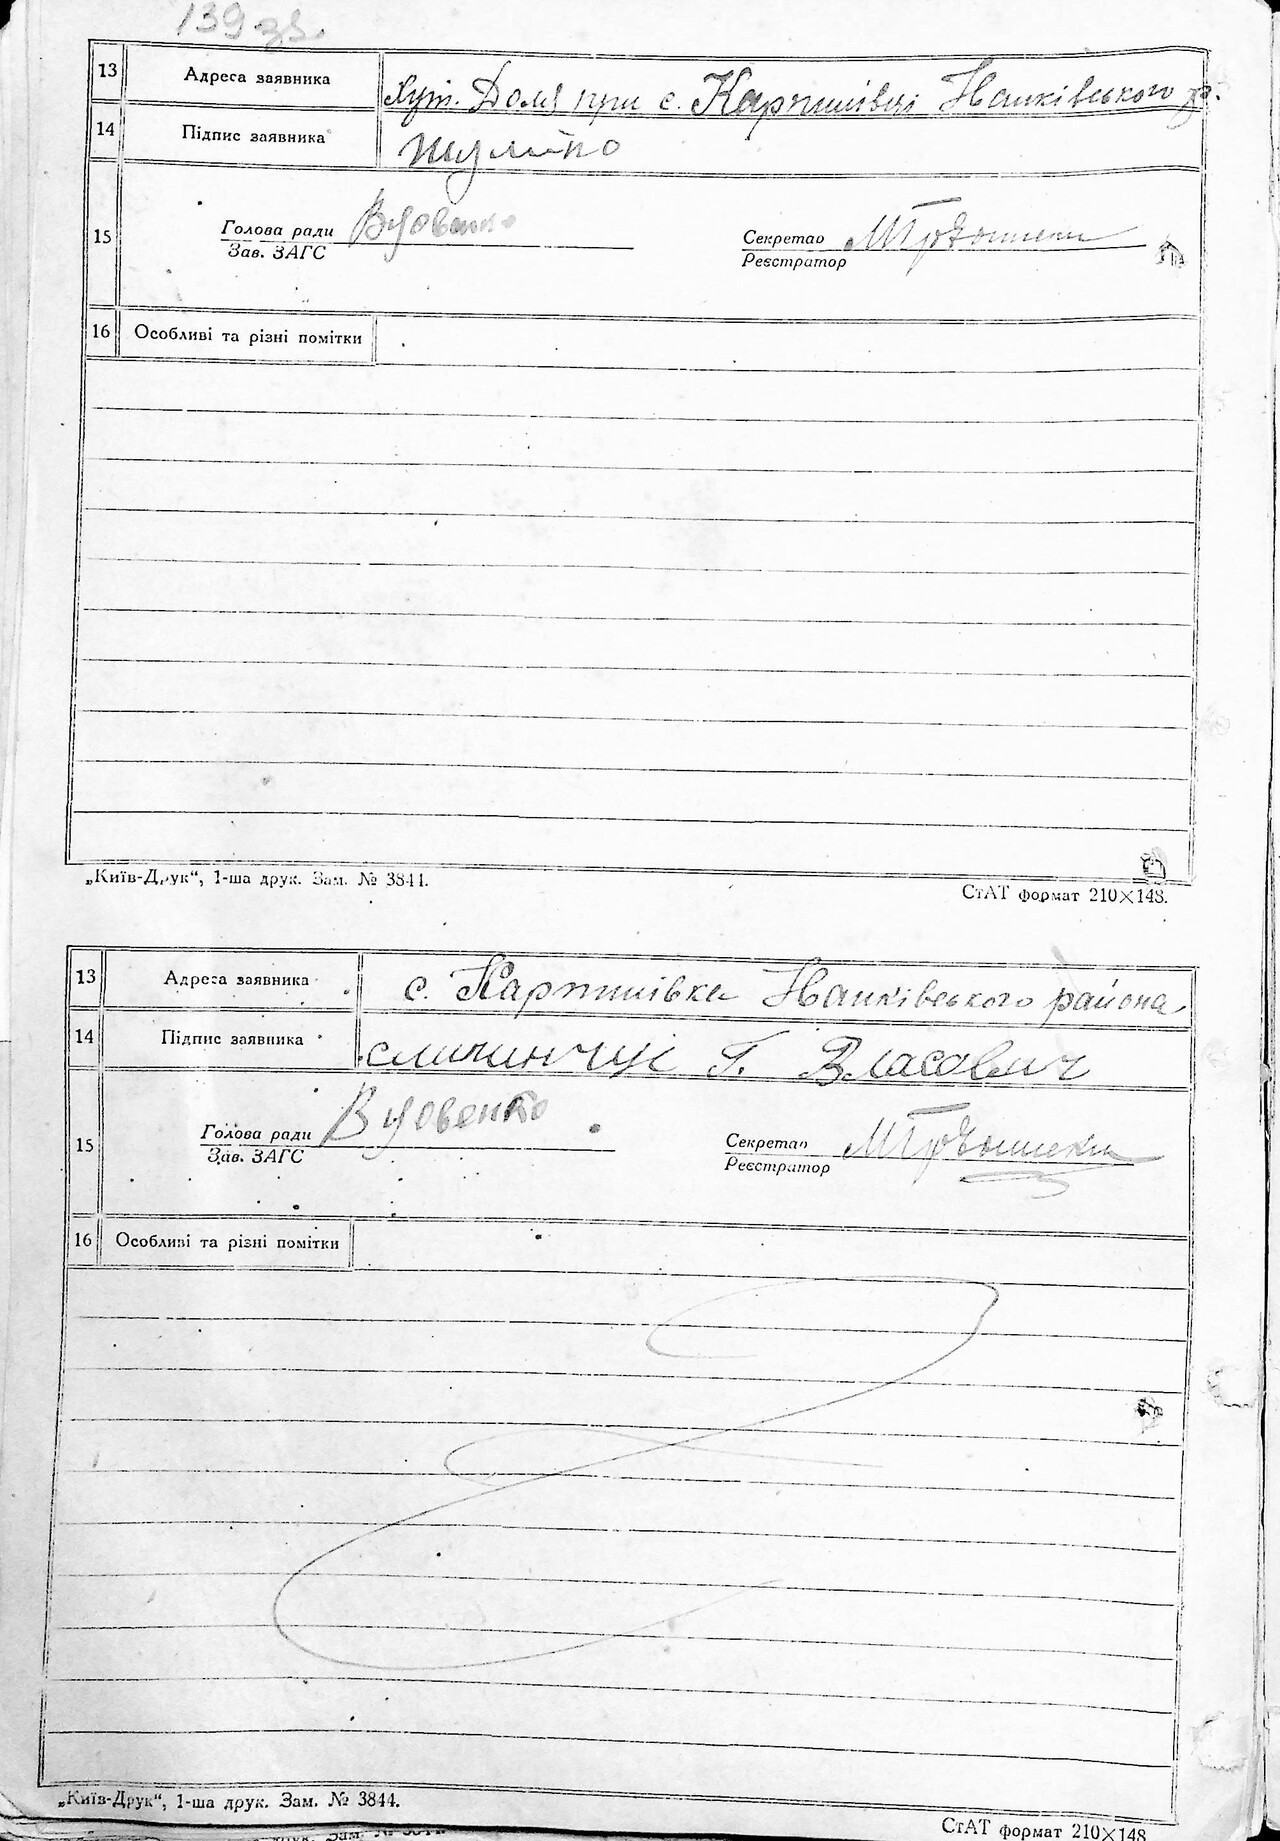 139 зв.
13 Адреса заявника Хут. Доля при с. Карпилівці Іванківського р.
14 Підпис заявника Шулейко
15 Голова ради Вдовенко Секретар
Зав. ЗАГС Реєстратор
16 Особливі та різні помітки
„Київ-Друк“, 1-ша друк. Зам. № 3844.
СтАТ формат 210×148.
13 Адреса заявника с. Карпилівка Іванківського района
14 Підпис заявника Г. Власович
15 Голова ради Вдовенко Секретар
Зав. ЗАГС Реєстратор
16 Особливі та різні помітки
„Київ-Друк“, 1-ша друк. Зам. № 3844.
СтАТ формат 210×148